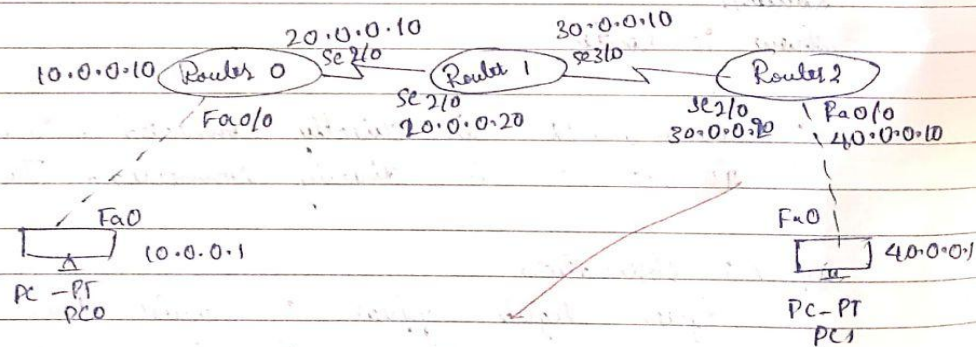 20.0.0.10
30.0.0.10
10.0.0.10
Router 0
Se 2/0
Router 1
Se3/0
Router 2
Fa0/0
Se 2/0
20.0.0.20
Se2/0
30.0.0.20
Fa0/0
40.0.0.10
Fa0
10.0.0.1
PC-PT
PC0
Fa0
40.0.0.1
PC-PT
PC1